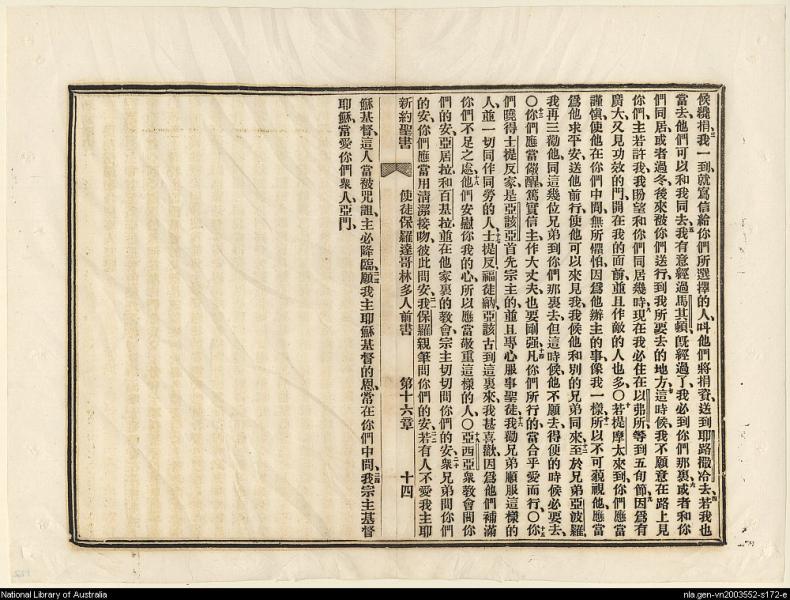 候纔捐、我一到、就寫信給你們所選擇的人、呌他們將捐資、送到耶路撒冷去、若我也
當去、他們可以和我同去、我有意經過馬其頓、旣經過了、我必到你們那裏、或者和你
們同居、或者過冬、後來被你們送行、到我所要去的地方、這時候我不願意在路上見
你們、主若許我、我盼望和你們同居幾時、現在我必住在以弗所、等到五旬節、因爲有
廣大又見功效的門、開在我的面前、並且作敵的人也多、〇若提摩太來到、你們應當
謹愼、使他在你們中間、無所懼怕、因爲他辦主的事、像我一樣、所以不可藐視他、應當
爲他求平安、送他前行、使他可以來見我、我候他和別的兄弟同來、至於兄弟亞波羅、
我再三勸他、同這幾位兄弟到你們那裏去、但這時候他不願去、得便的時候必要去、
〇你們應當儆醒、篤實信主、作大丈夫、也要剛强、凡你們所行的、當合乎愛而行、〇你
們曉得士提反家是亞該亞首先宗主的、並且專心服事聖徒、我勸兄弟順服這樣的
人、並一切同作同勞的人、士提反、福徒拿亞該古到這裏來、我甚喜歡、因爲他們補滿
你們不足之處、他們安慰你我的心、所以應當敬重這樣的人、〇亞西亞衆教會問你
們的安、亞居拉和百基拉、並在他家裏的教會、宗主切切問你們的安、衆兄弟問你們
的安、你們應當用淸潔接吻、彼此問安、我保羅親筆問你們的安、若有人不愛我主耶
新約聖書 使徒保羅達哥林多人前書 第十六章 十四
穌基督、這人當被咒詛、主必降臨、願我主耶穌基督的恩、常在你們中間、我宗主基督
耶穌、常愛你們衆人、亞門、
National Library of Australia
nla.gen-vn2003552-s172-e